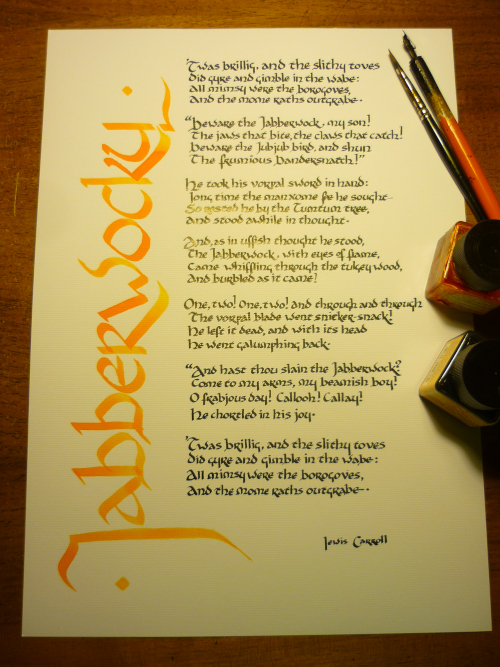 Jabberwocky
'Twas brillig, and the slithy toves
Did gyre and gimble in the wabe:
All mimsy were the borogoves,
And the mome raths outgrabe.
"Beware the Jabberwock, my son!
The jaws that bite, the claws that catch!
Beware the Jubjub bird, and shun
The frumious Bandersnatch!"
He took his vorpal sword in hand:
Long time the manxome foe he sought—
So rested he by the Tumtum tree,
And stood awhile in thought.
And, as in uffish thought he stood,
The Jabberwock, with eyes of flame,
Came whiffling through the tulgey wood,
And burbled as it came!
One, two! One, two! and through and through
The vorpal blade went snicker-snack!
He left it dead, and with its head
He went galumphing back.
"And hast thou slain the Jabberwock?
Come to my arms, my beamish boy!
O frabjous day! Callooh! Callay!
He chortled in his joy.
'Twas brillig, and the slithy toves
Did gyre and gimble in the wabe:
All mimsy were the borogoves,
And the mome raths outgrabe.
Lewis Carroll